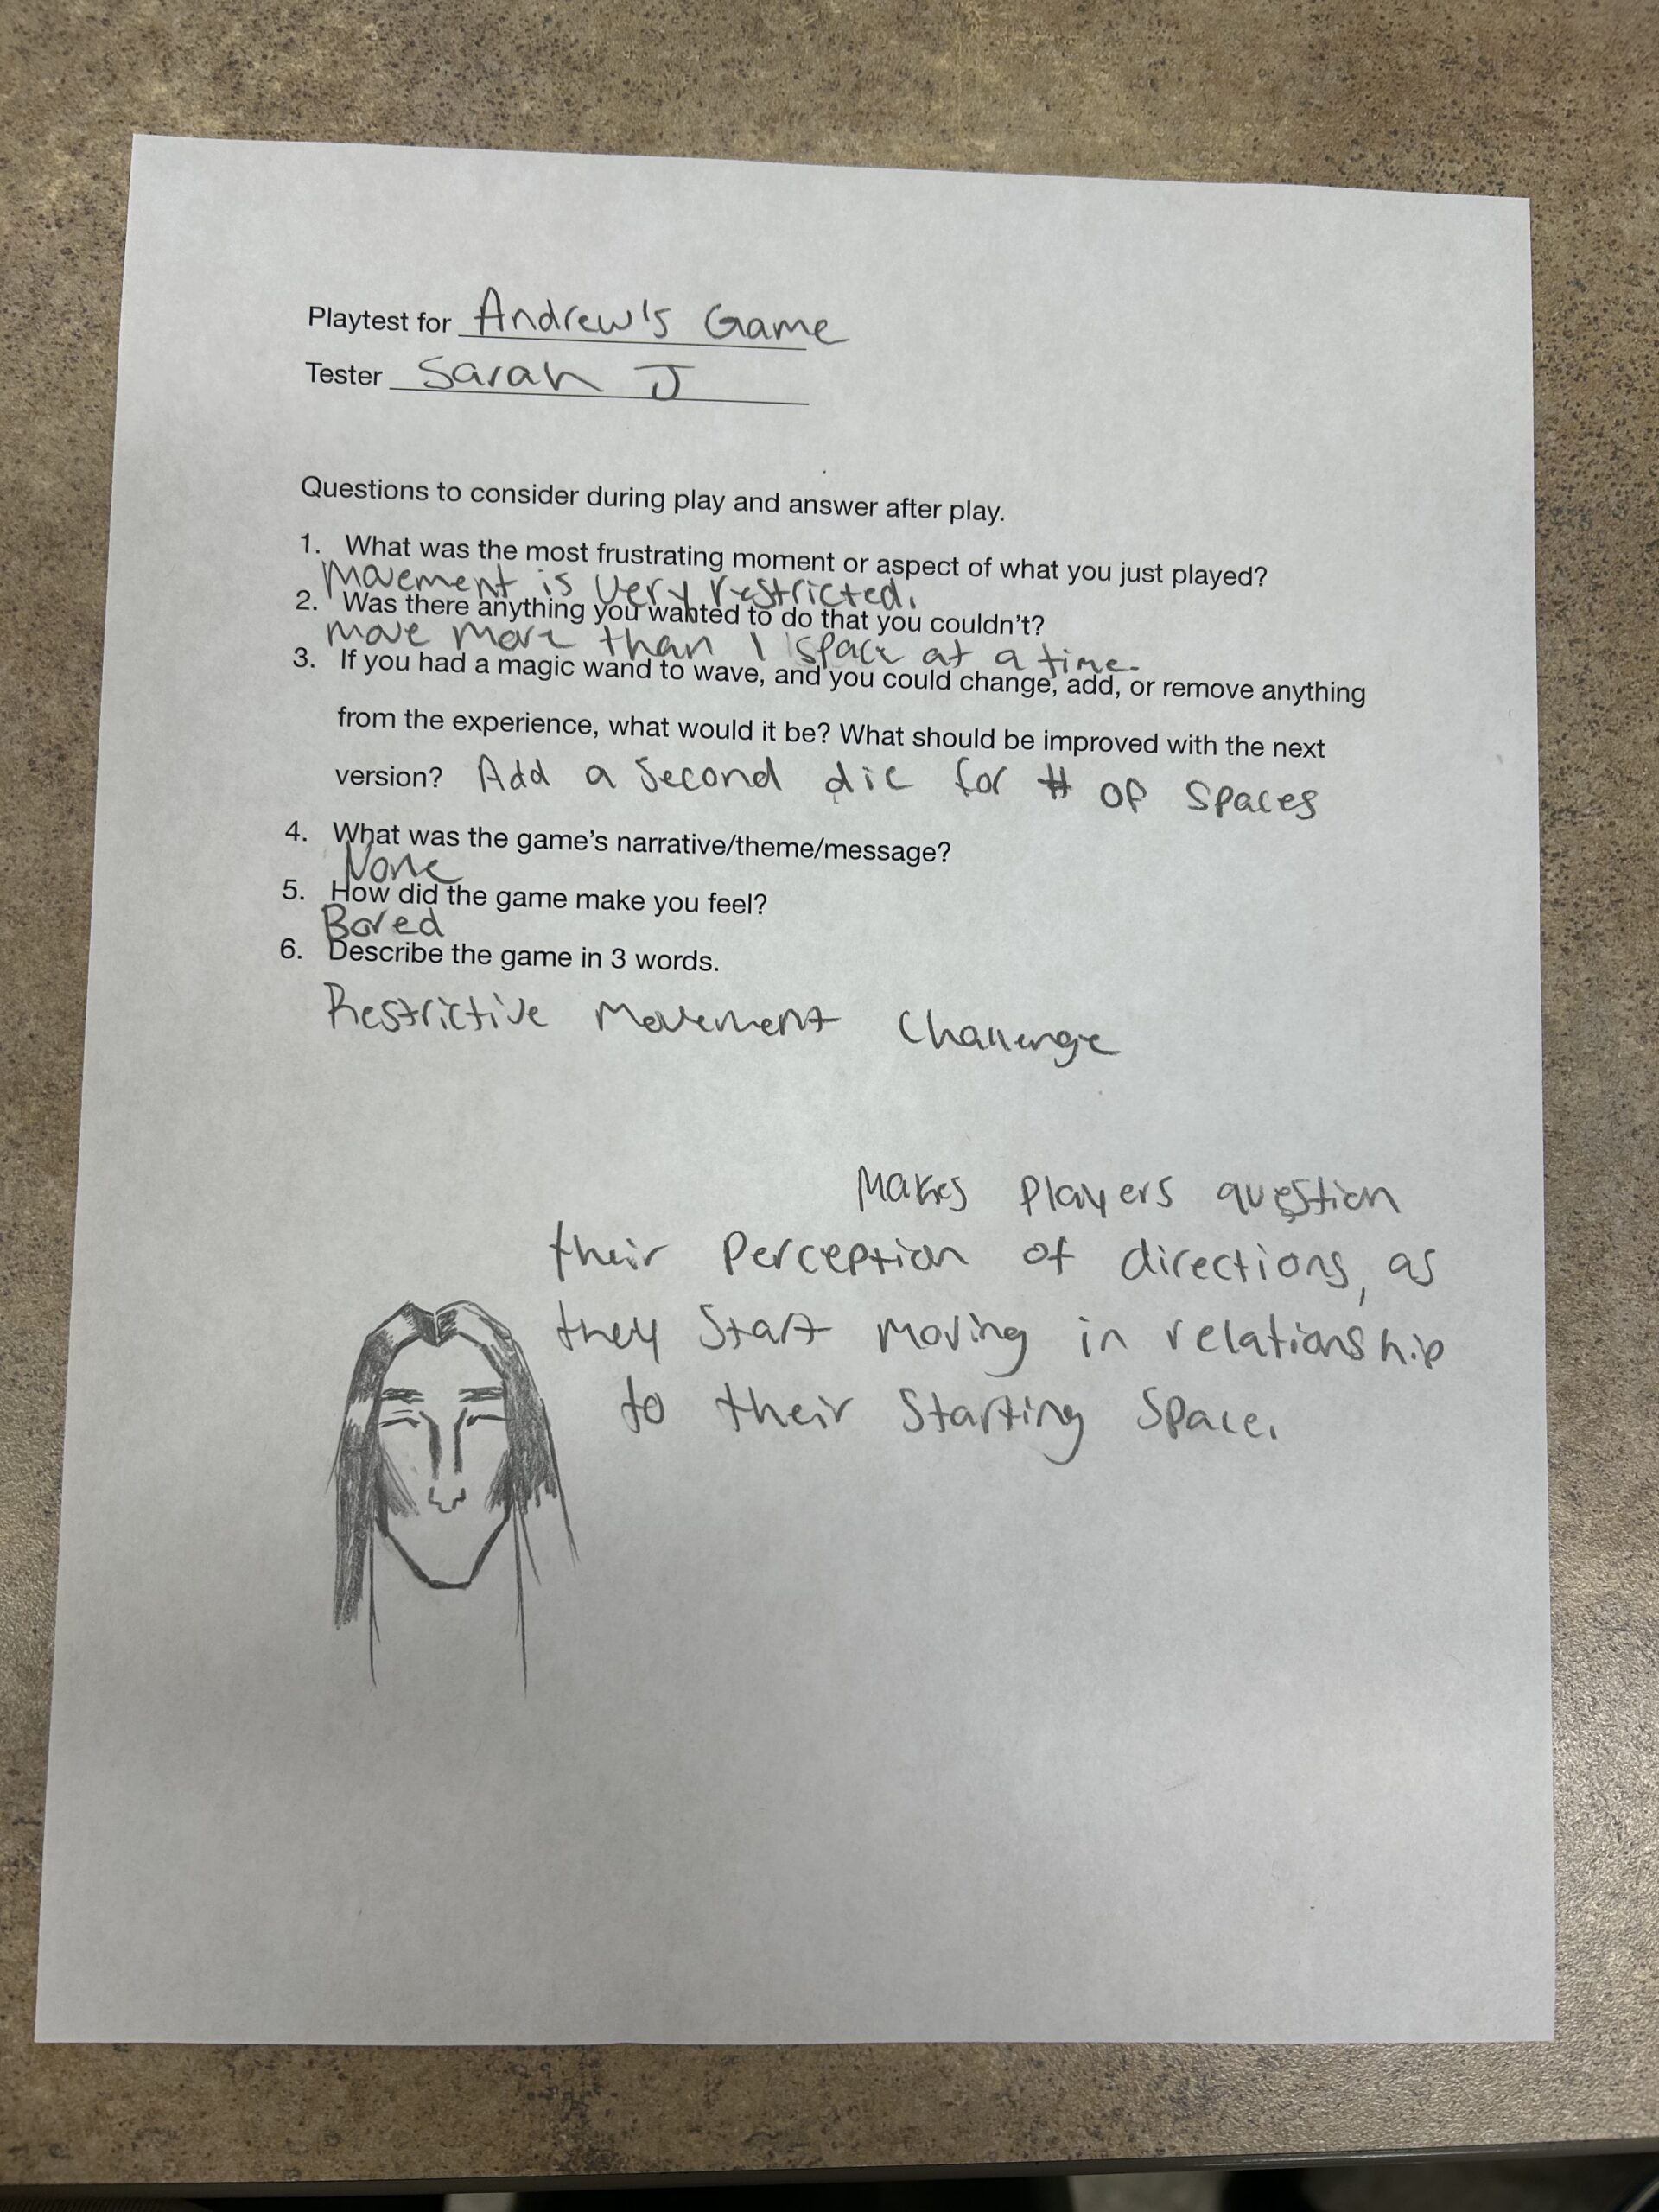 Playtest for Andrew's Game
Tester Sarah J
Questions to consider during play and answer after play.
1. What was the most frustrating moment or aspect of what you just played?
Movement is very restricted.
2. Was there anything you wanted to do that you couldn't?
move more than 1 space at a time.
3. If you had a magic wand to wave, and you could change, add, or remove anything
from the experience, what would it be? What should be improved with the next
version? Add a second die for # of spaces
4. What was the game's narrative/theme/message?
None
5. How did the game make you feel?
Bored
6. Describe the game in 3 words.
Restrictive Movement Challenge
Makes players question
their perception of directions, as
they start moving in relationship
to their starting space.